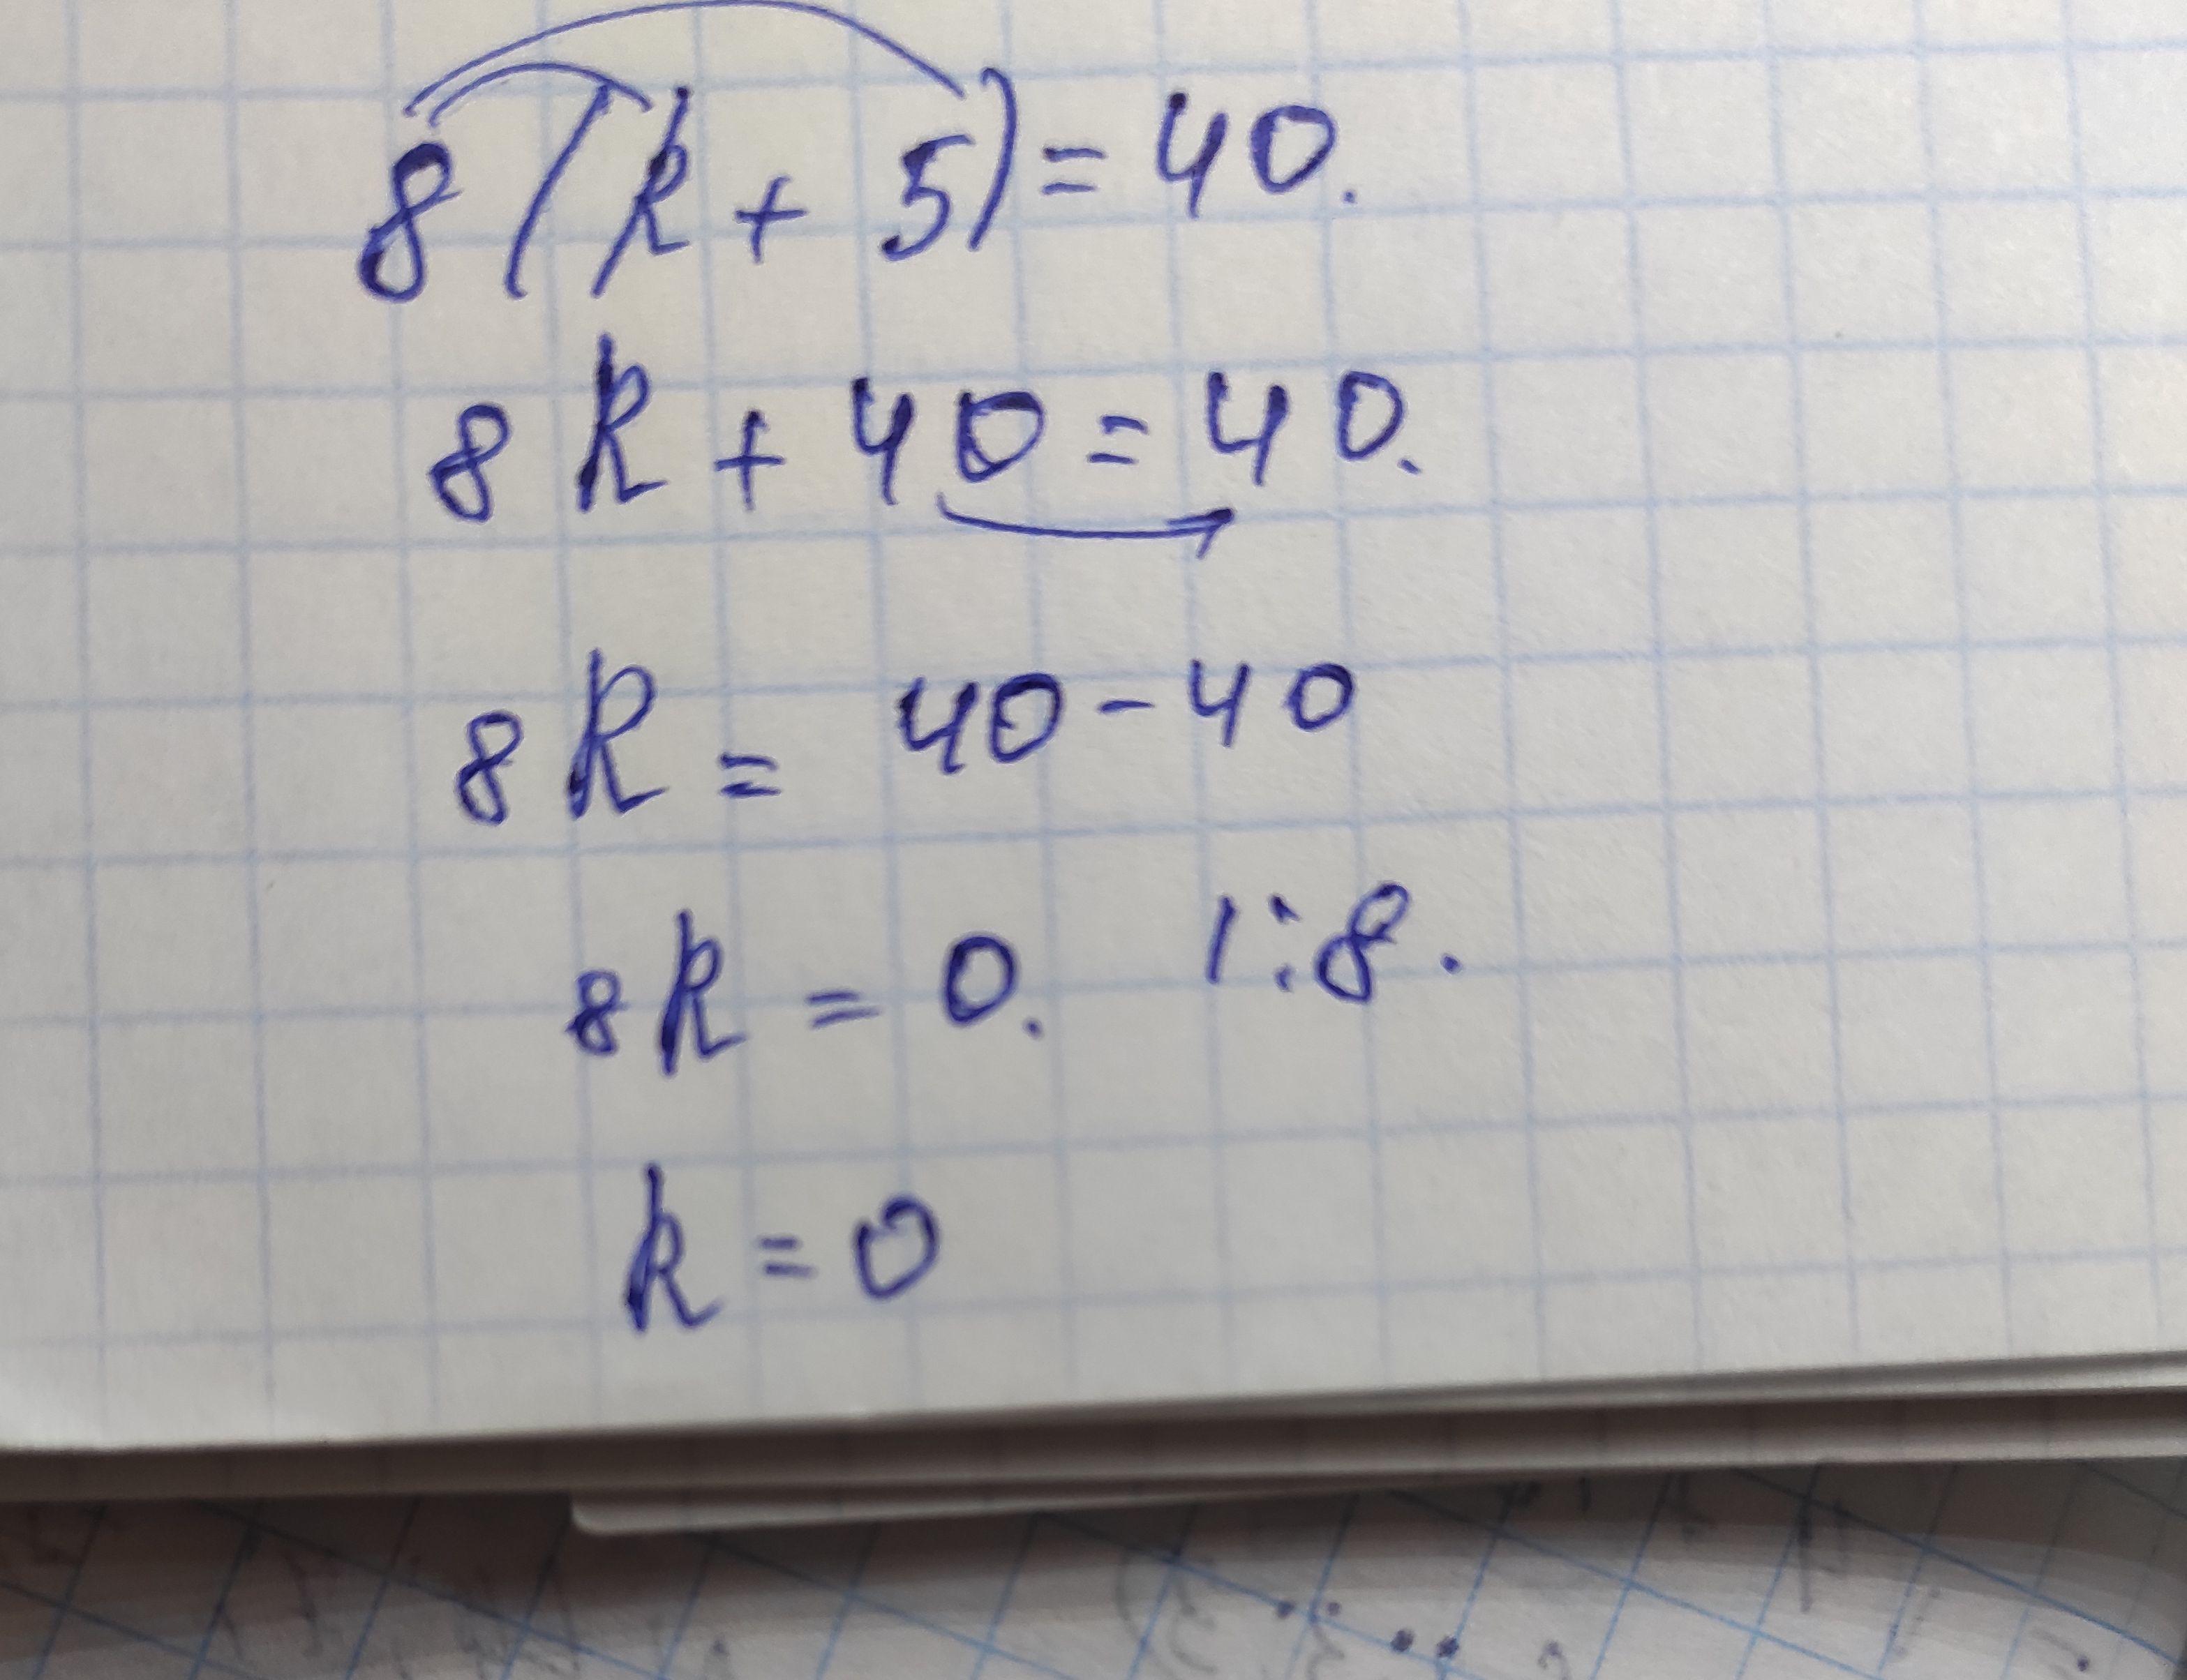 8(k + 5) = 40.
8k + 40 = 40.
8k = 40 - 40
8k = 0. |:8.
k = 0